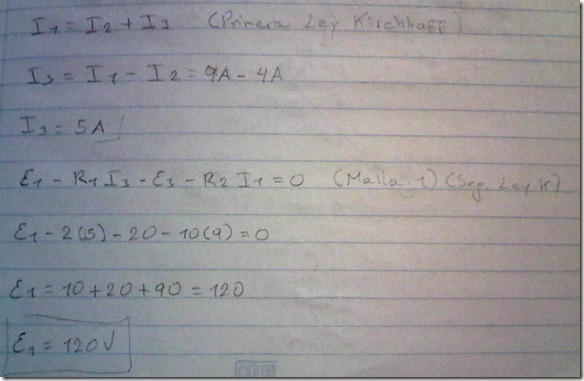 I1 = I2 + I3 (Primera Ley Kirchhoff)
I3 = I1 - I2 = 9A - 4A
I3 = 5A
ε1 - R1 I3 - ε3 - R2 I1 = 0 (Malla 1) (Seg. Ley K)
ε1 - 2(5) - 20 - 10(9) = 0
ε1 = 10 + 20 + 90 = 120
ε1 = 120V